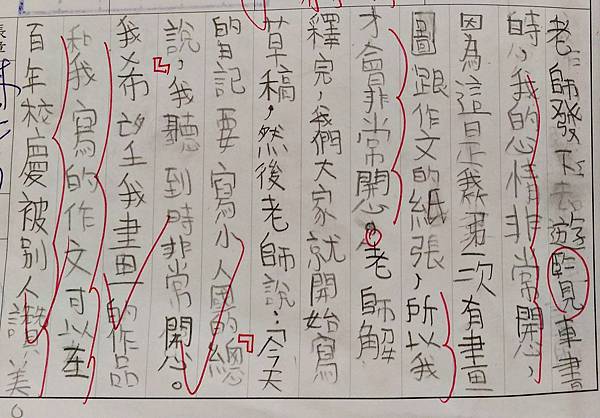 老師發下去遊覽車畫
時，我的心情非常開心，
因為這是我第一次有畫
圖跟作文的紙張，所以我
才會非常開心。老師解
釋完，我們大家就開始寫
草稿，然後老師說：「今天
的日記要寫小人國的總
說」，我聽到時非常開心。
我希望我畫的作品
和我寫的作文可以在
百年校慶被別人讚美。